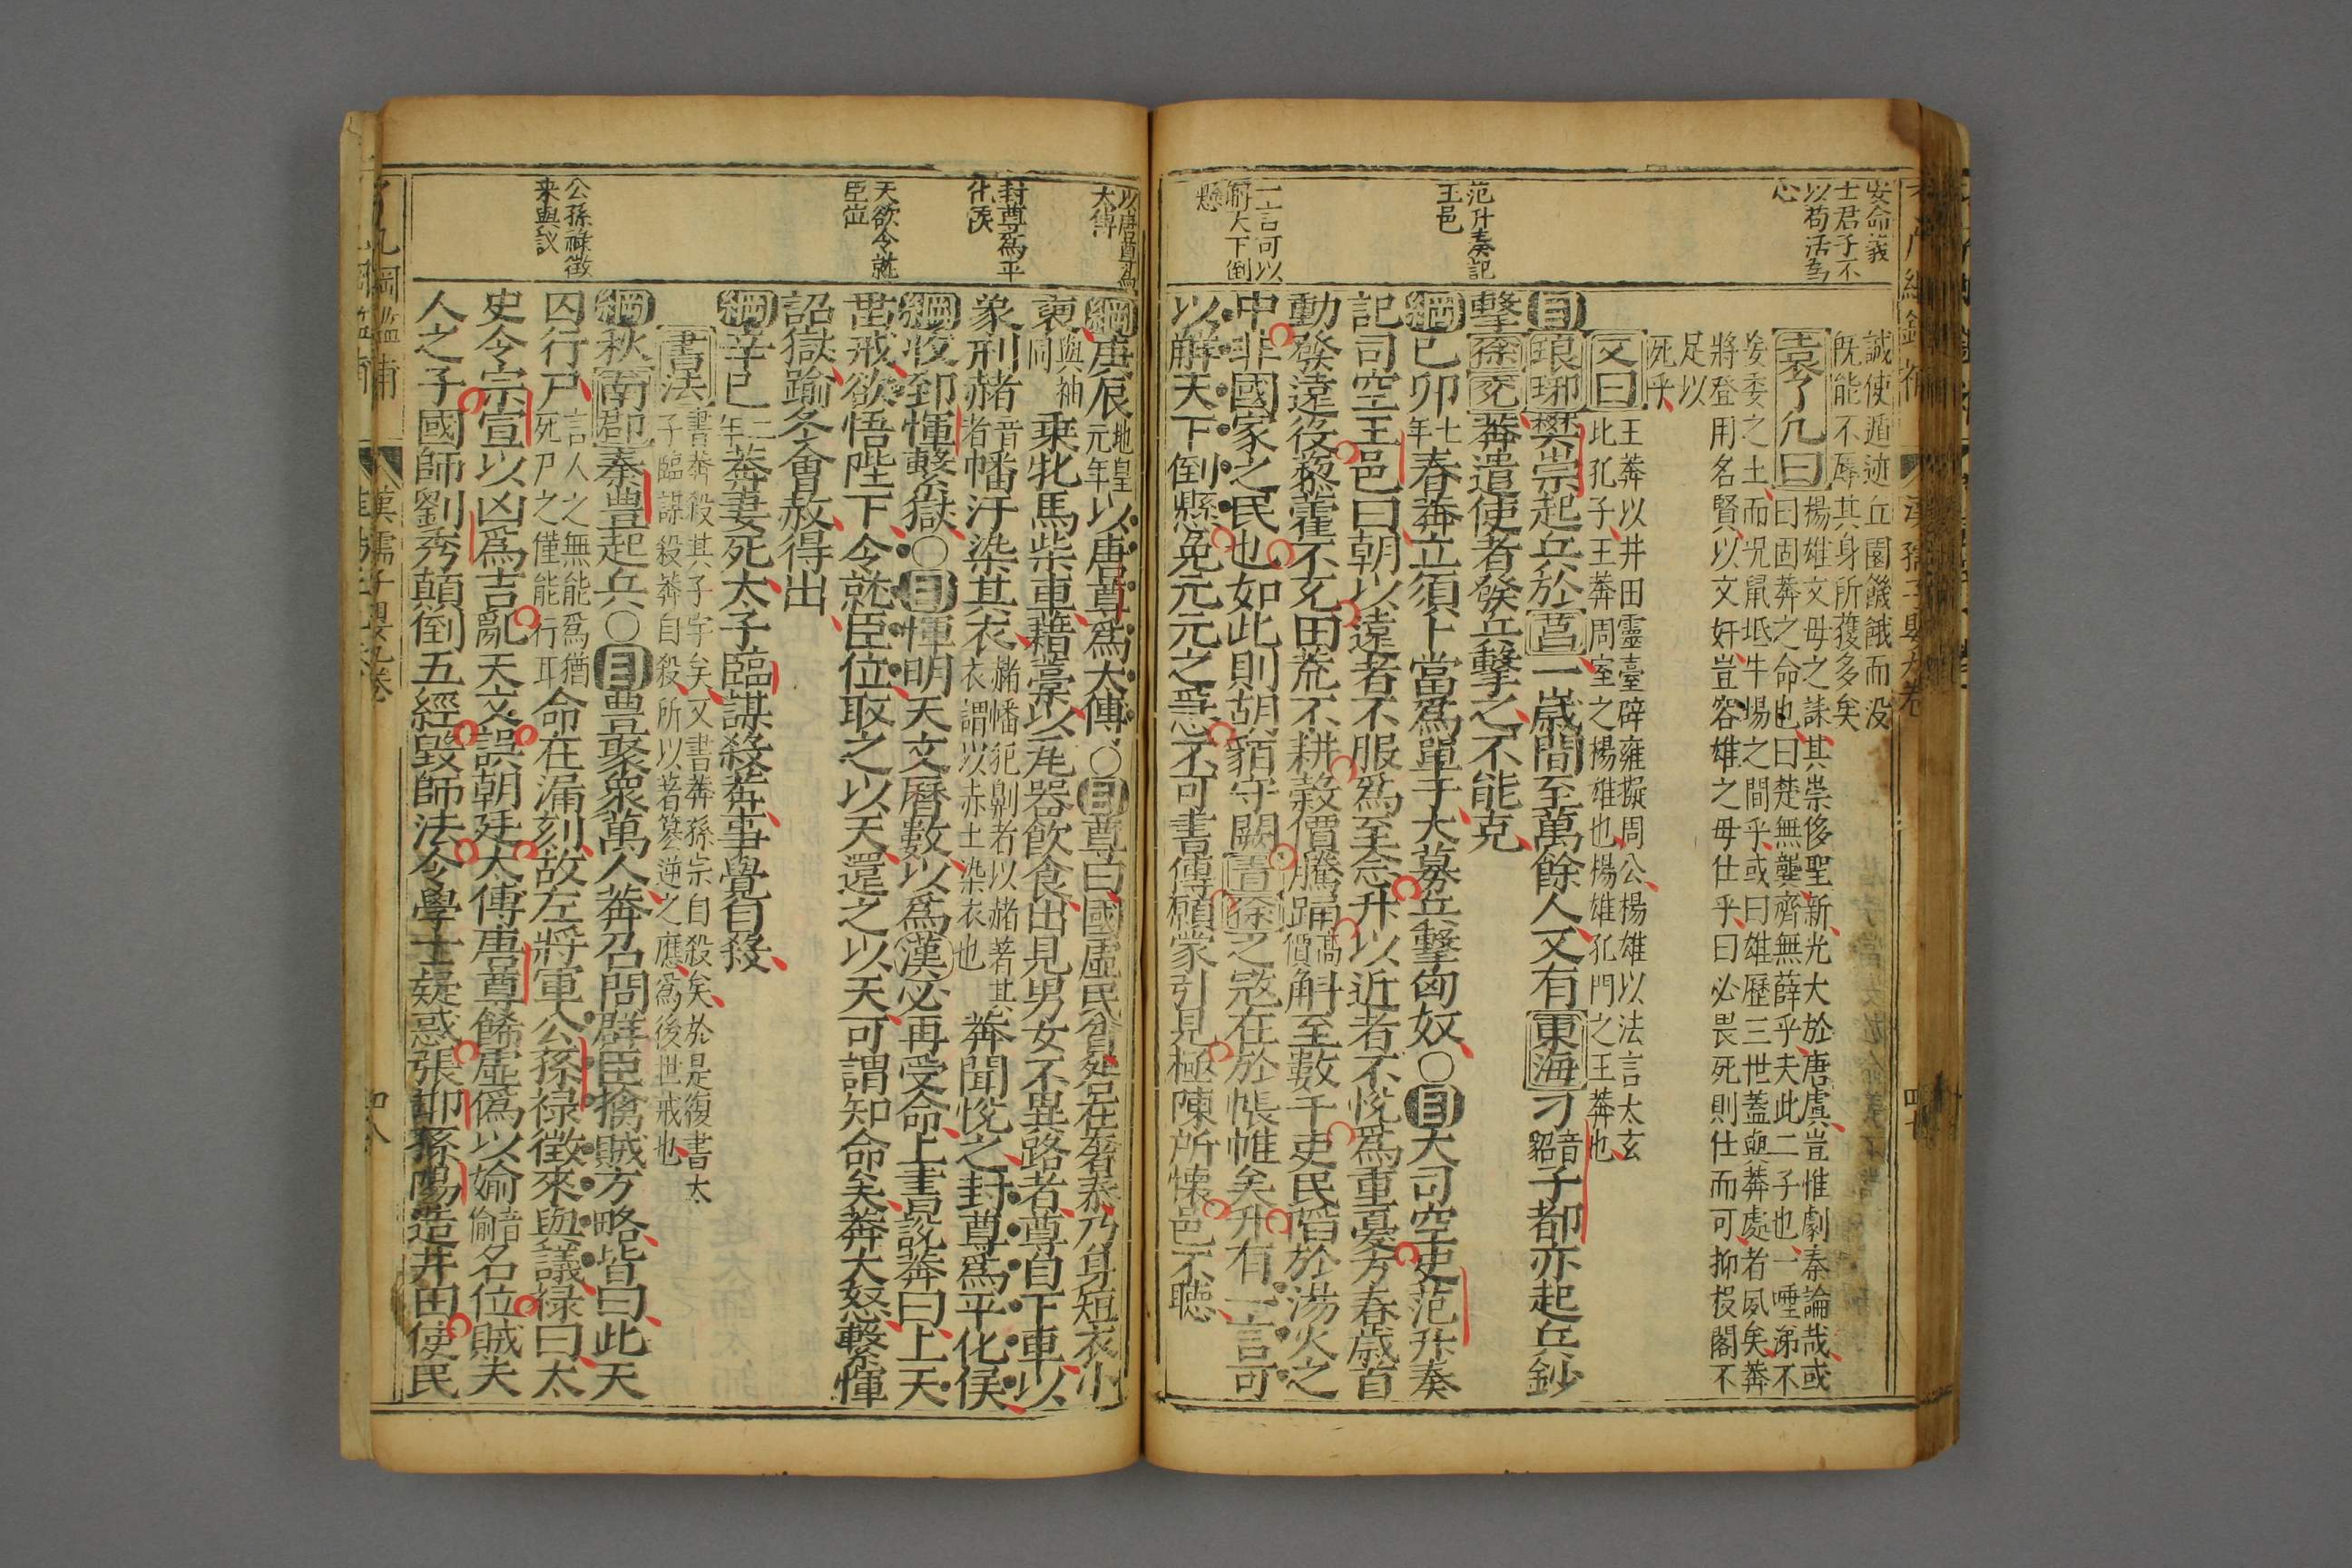 安命義
士君子不
以苟活為
心
范升奏記
王邑
一言可以
解天下倒
懸
誠使遁迹丘園饑餓而没
既能不辱其身所獲多矣
袁了凡曰楊雄文母之誄其崇侈聖新光大於唐虞豈惟劇秦論哉或
曰固莽之命也曰楚無龔齊無薛乎夫此二子也一唾涕不
妄委之土而況鼠坻牛場之間乎或曰雄歷三世蓋與莽處者夙矣莽
將登用名賢以文奸豈容雄之毋仕乎曰必畏死則仕而可抑投閣不
足以
死乎
又曰王莽以井田靈臺辟雍擬周公楊雄以法言太玄
此孔子王莽周室之楊雄也楊雄孔門之王莽也
目琅琊樊崇起兵於莒一歲間至萬餘人又有東海刁音貂子都亦起兵鈔
擊徐兗莽遣使者發兵擊之不能克
綱己卯七年春莽立須卜當為單于大募兵擊匈奴○目大司空吏范升奏
記司空王邑曰朝以遠者不服為至念升以近者不悅為重憂方春歲首
動發遠役藜藿不充田荒不耕穀價騰踊高價斛至數千吏民陷於湯火之
中非國家之民也如此則胡貊守闕青徐之寇在於帷帳矣升有一言可
以解天下倒懸免元元之急不可書傳願蒙引見極陳所懷邑不聽
以唐尊為
太傅
封尊為平
化侯
天欲令就
臣位
公孫祿徵
來與議
綱庚辰地皇元年以唐尊為太傅○目尊曰國虛民貧咎在奢泰乃身短衣小
褏與袖同乗牝馬柴車藉藁以瓦器飲食出見男女不異路者尊自下車以
象刑赭音者幡汙染其衣赭幡犯劓者以赭著其衣謂以赤土染衣也莽聞悅之封尊為平化侯
綱收郅惲繫獄○目惲明天文曆數以為漢必再受命上書說莽曰上天
苗戒欲悟陛下令就臣位取之以天還之以天可謂知命矣莽大怒繫惲
詔獄踰冬會赦得出
綱辛巳二年莽妻死太子臨謀殺莽事覺自殺
書法書莽殺其子宇矣又書莽孫宗自殺矣於是復書太
子臨謀殺莽自殺所以著篡逆之應為後世戒也
綱秋南郡秦豐起兵○目豊聚衆萬人莽召問群臣擒賊方略皆曰此天
囚行尸言人之無能為猶死尸之僅能行耳命在漏刻故左將軍公孫祿徵來與議祿曰太
史令宗宣以凶為吉亂天文誤朝廷太傅唐尊餙虛僞以婾音偷名位賊夫
人之子國師劉秀顛倒五經毀師法令學士疑惑張邯孫陽造井田使民